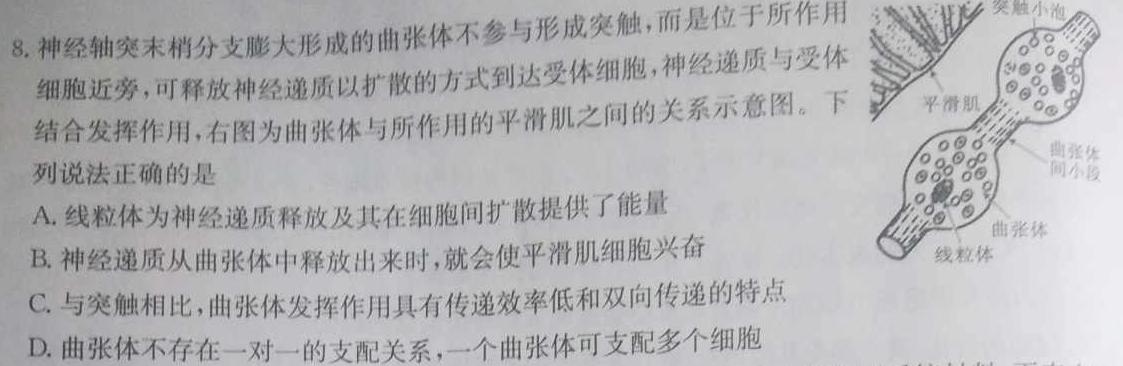 8. 神经轴突末梢分支膨大形成的曲张体不参与形成突触,而是位于所作用
细胞近旁,可释放神经递质以扩散的方式到达受体细胞,神经递质与受体
结合发挥作用,右图为曲张体与所作用的平滑肌之间的关系示意图。下
列说法正确的是
A. 线粒体为神经递质释放及其在细胞间扩散提供了能量
B. 神经递质从曲张体中释放出来时,就会使平滑肌细胞兴奋
C. 与突触相比,曲张体发挥作用具有传递效率低和双向传递的特点
D. 曲张体不存在一对一的支配关系,一个曲张体可支配多个细胞
突触小泡
平滑肌
曲张体
间小段
曲张体
线粒体